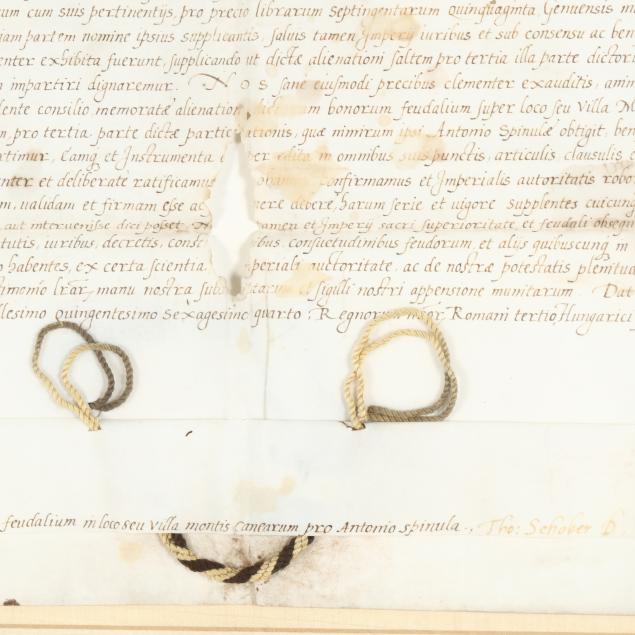 um cum suis pertinentijs, pro precio librarum Septingentarum Quinquaginta Genuensis m
iam partem nomine ipsius supplicantis, saluis tamen Imperij iuribus et sub consensu ac ben
enter exhibita fuerunt, supplicando ut dictæ alienationi saltem pro tertia illa parte dictori
n impartiri dignaremur. Nos sane eiusmodi precibus clementer exauditis, anim
lente consilio, memoratæ alienation dictorum bonorum feudalium super loco seu Villa M
n, pro tertia parte dictæ partic ationis, quæ nimirum ipsi Antonio Spinulæ obtigit, ben
rtimur, Eamq et Instrumenta per edita in omnibus suis punctis, articulis, clausulis e
nter et deliberate ratificamus confirmamus et Imperialis autoritatis robor
m, ualidam et firmam esse ac ere debere, harum serie et uigore supplentes cuicung
aut interuenisse dici posset. tamen et Imperij sacri superioritate, et feudali obsequ
tutis, iuribus, decretis, const ibus, consuetudinibus feudorum, et alijs quibuscunq m
o habentes, ex certa scientia Imperiali auctoritate, ac de nostræ potestatis plenitud
timonio lrar, manu nostra sub tarum et sigilli nostri appensione munitarum. Dat
llesimo quingentesimo Sexagesimo quarto. Regnorum nror Romani tertio, Hungarici
feudalium in loco seu Villa montis Canearum pro Antonio Spinula. Tho: Schober D.